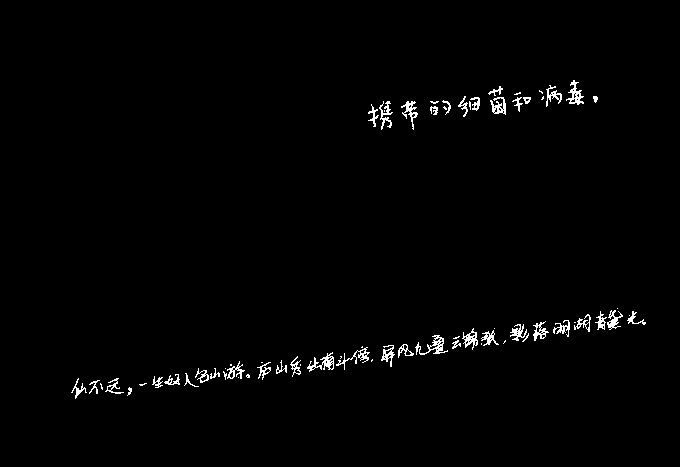 携带的细菌和病毒。
仙不远,一生好入名山游。庐山秀出南斗傍,屏风九叠云锦张,影落明湖青黛光。